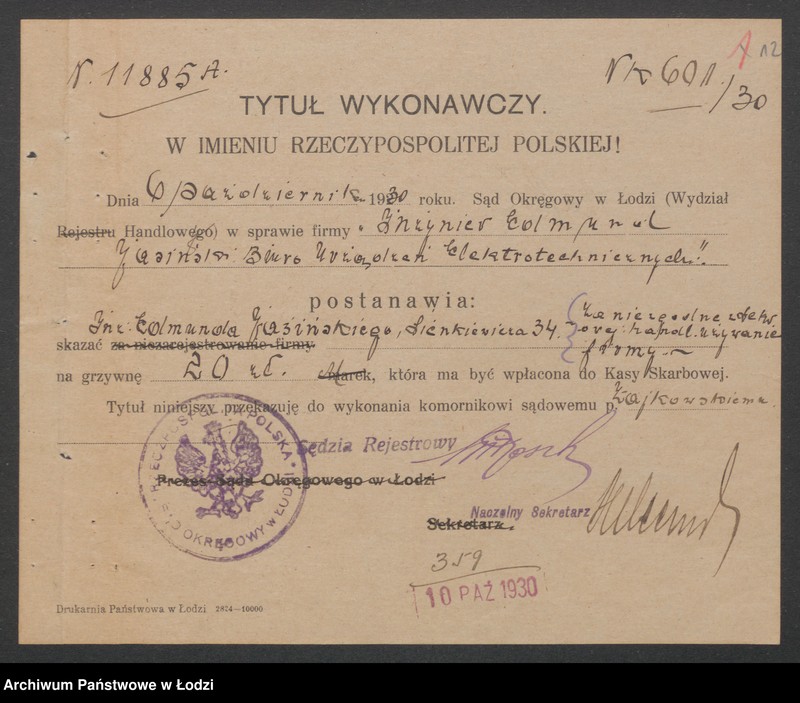 N. 11885 A.
A 12
N k 601/30
TYTUŁ WYKONAWCZY.
W IMIENIU RZECZYPOSPOLITEJ POLSKIEJ!
Dnia 6 październik 1930 roku. Sąd Okręgowy w Łodzi (Wydział
Rejestru Handlowego) w sprawie firmy „Inżynier Edmund
Jasiński Biuro Urządzeń Elektrotechnicznych".
postanawia:
Inż. Edmunda Jasińskiego, Sienkiewicza 34.
za niezgodne
handl. używanie
firmy
skazać za niezarejestrowanie firmy
na grzywnę 20 zł. Marek, która ma być wpłacona do Kasy Skarbowej.
Tytuł niniejszy przekazuję do wykonania komornikowi sądowemu p. Zajkowskiemu
Sędzia Rejestrowy
Prezes Sądu Okręgowego w Łodzi
RZECZPOSPOLITA POLSKA
SĄD OKRĘGOWY w ŁODZI
Naczelny Sekretarz
Sekretarz.
359
10 PAŹ 1930
Drukarnia Państwowa w Łodzi 2824—10000
Archiwum Państwowe w Łodzi